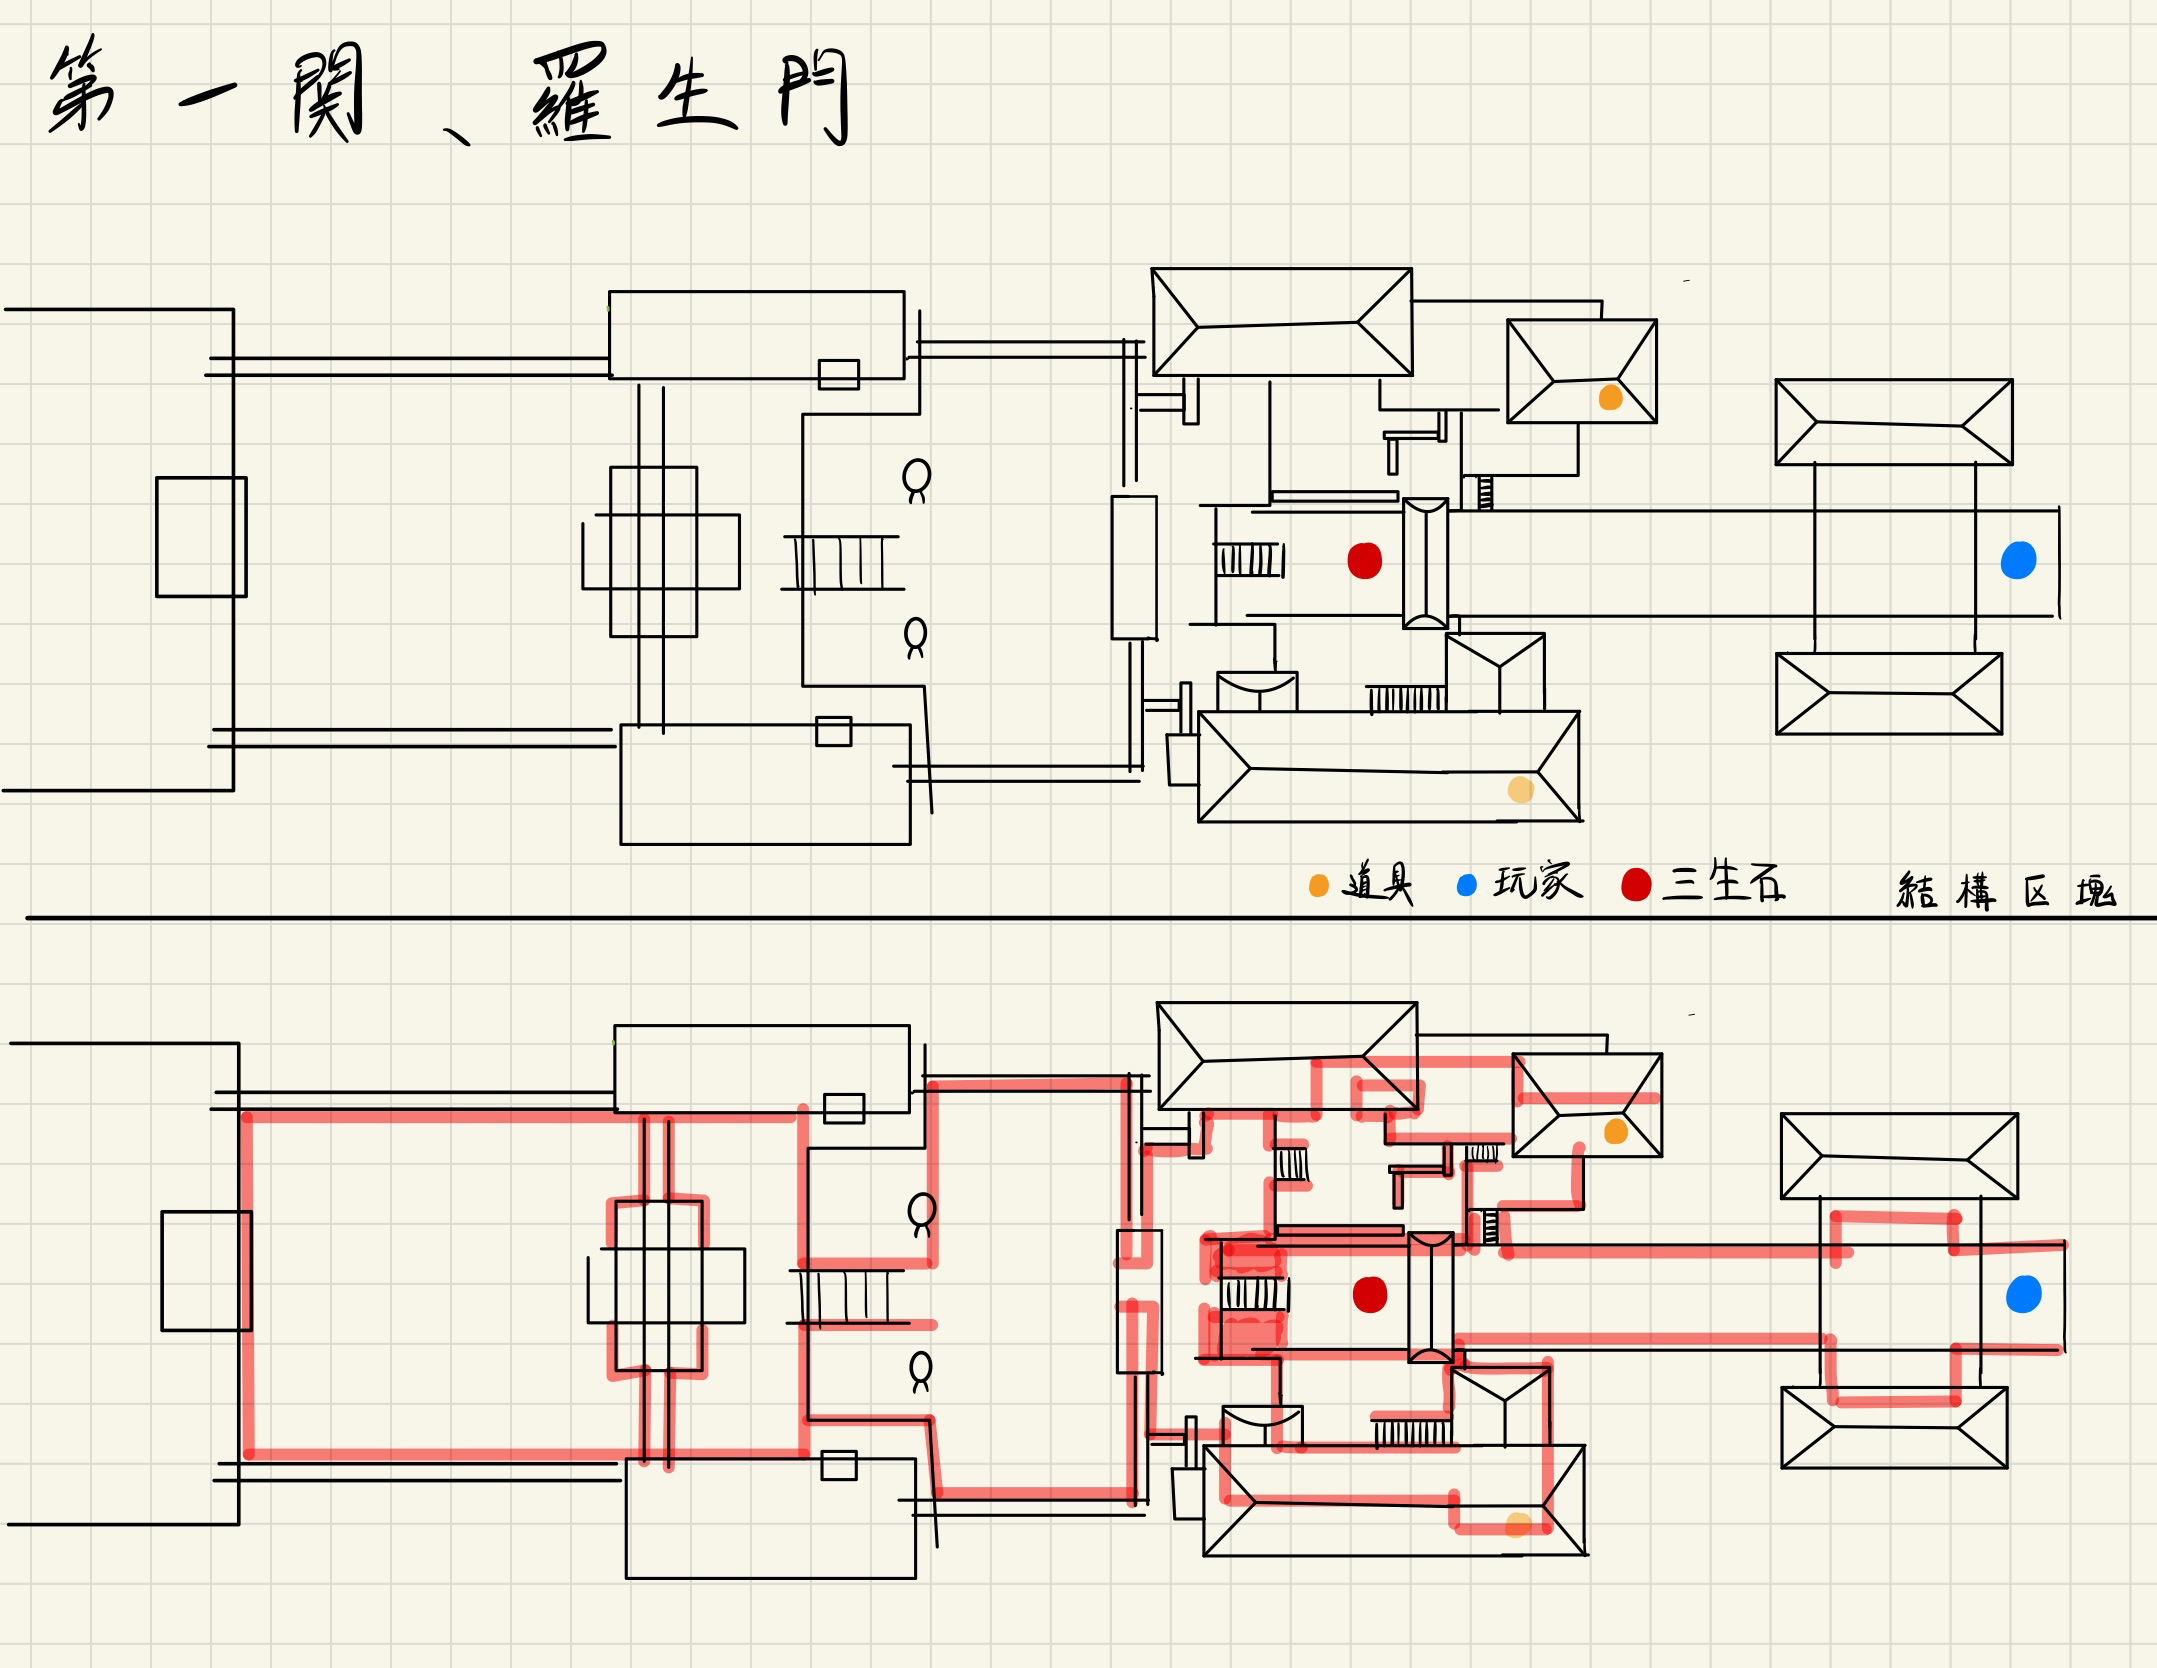 第一関、羅生門
道具 玩家 三生石 結構区塊